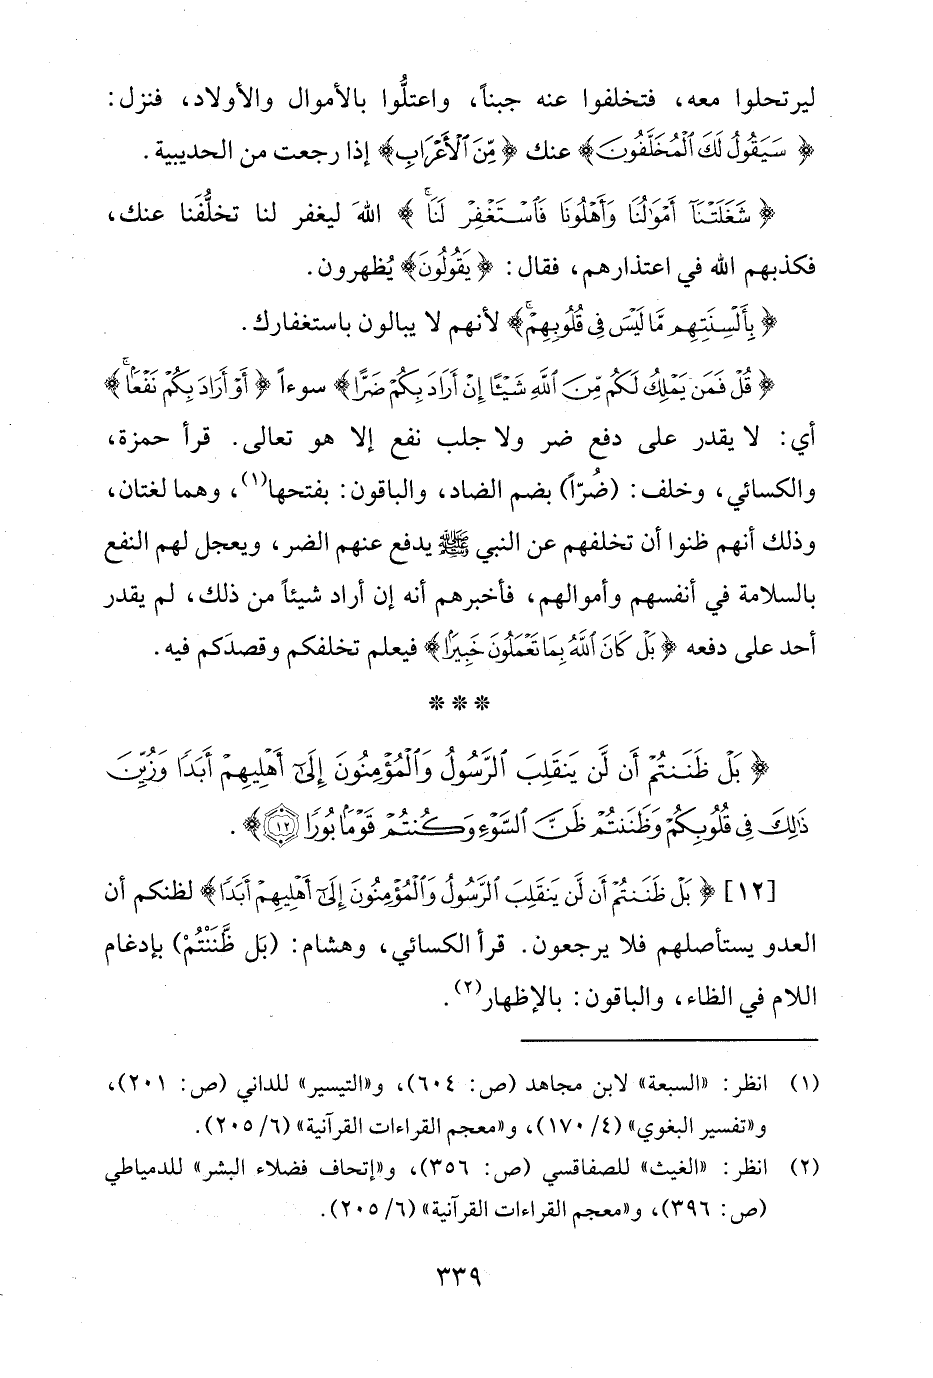 ليرتحلوا معه، فتخلفوا عنه جبناً، واعتلُّوا بالأموال والأولاد، فنزل:
﴿ سَيَقُولُ لَكَ ٱلْمُخَلَّفُونَ ﴾ عنك ﴿ مِنَ ٱلْأَعْرَابِ ﴾ إذا رجعت من الحديبية.
﴿ شَغَلَتْنَآ أَمْوَٰلُنَا وَأَهْلُونَا فَٱسْتَغْفِرْ لَنَا ۚ ﴾ اللهَ ليغفر لنا تخلُّفَنا عنك،
فكذبهم الله في اعتذارهم، فقال: ﴿ يَقُولُونَ ﴾ يُظهرون.
﴿ بِأَلْسِنَتِهِم مَّا لَيْسَ فِى قُلُوبِهِمْ ۚ ﴾ لأنهم لا يبالون باستغفارك.
﴿ قُلْ فَمَن يَمْلِكُ لَكُم مِّنَ ٱللَّهِ شَيْـًٔا إِنْ أَرَادَ بِكُمْ ضَرًّا ﴾ سوءاً ﴿ أَوْ أَرَادَ بِكُمْ نَفْعًۢا ۚ ﴾
أي: لا يقدر على دفع ضر ولا جلب نفع إلا هو تعالى. قرأ حمزة،
والكسائي، وخلف: (ضُرّاً) بضم الضاد، والباقون: بفتحها(١)، وهما لغتان،
وذلك أنهم ظنوا أن تخلفهم عن النبي ﷺ يدفع عنهم الضر، ويعجل لهم النفع
بالسلامة في أنفسهم وأموالهم، فأخبرهم أنه إن أراد شيئاً من ذلك، لم يقدر
أحد على دفعه ﴿ بَلْ كَانَ ٱللَّهُ بِمَا تَعْمَلُونَ خَبِيرًۢا ﴾ فيعلم تخلفكم وقصدَكم فيه.
* * *
﴿ بَلْ ظَنَنتُمْ أَن لَّن يَنقَلِبَ ٱلرَّسُولُ وَٱلْمُؤْمِنُونَ إِلَىٰٓ أَهْلِيهِمْ أَبَدًا وَزُيِّنَ
ذَٰلِكَ فِى قُلُوبِكُمْ وَظَنَنتُمْ ظَنَّ ٱلسَّوْءِ وَكُنتُمْ قَوْمًۢا بُورًا ١٢ ﴾.
[١٢] ﴿ بَلْ ظَنَنتُمْ أَن لَّن يَنقَلِبَ ٱلرَّسُولُ وَٱلْمُؤْمِنُونَ إِلَىٰٓ أَهْلِيهِمْ أَبَدًا ﴾ لظنكم أن
العدو يستأصلهم فلا يرجعون. قرأ الكسائي، وهشام: (بَل ظَّنَنْتُمْ) بإدغام
اللام في الظاء، والباقون: بالإظهار(٢).
(١) انظر: «السبعة» لابن مجاهد (ص: ٦٠٤)، و«التيسير» للداني (ص: ٢٠١)،
و«تفسير البغوي» (٤/ ١٧٠)، و«معجم القراءات القرآنية» (٦/ ٢٠٥).
(٢) انظر: «الغيث» للصفاقسي (ص: ٣٥٦)، و«إتحاف فضلاء البشر» للدمياطي
(ص: ٣٩٦)، و«معجم القراءات القرآنية» (٦/ ٢٠٥).
٣٣٩